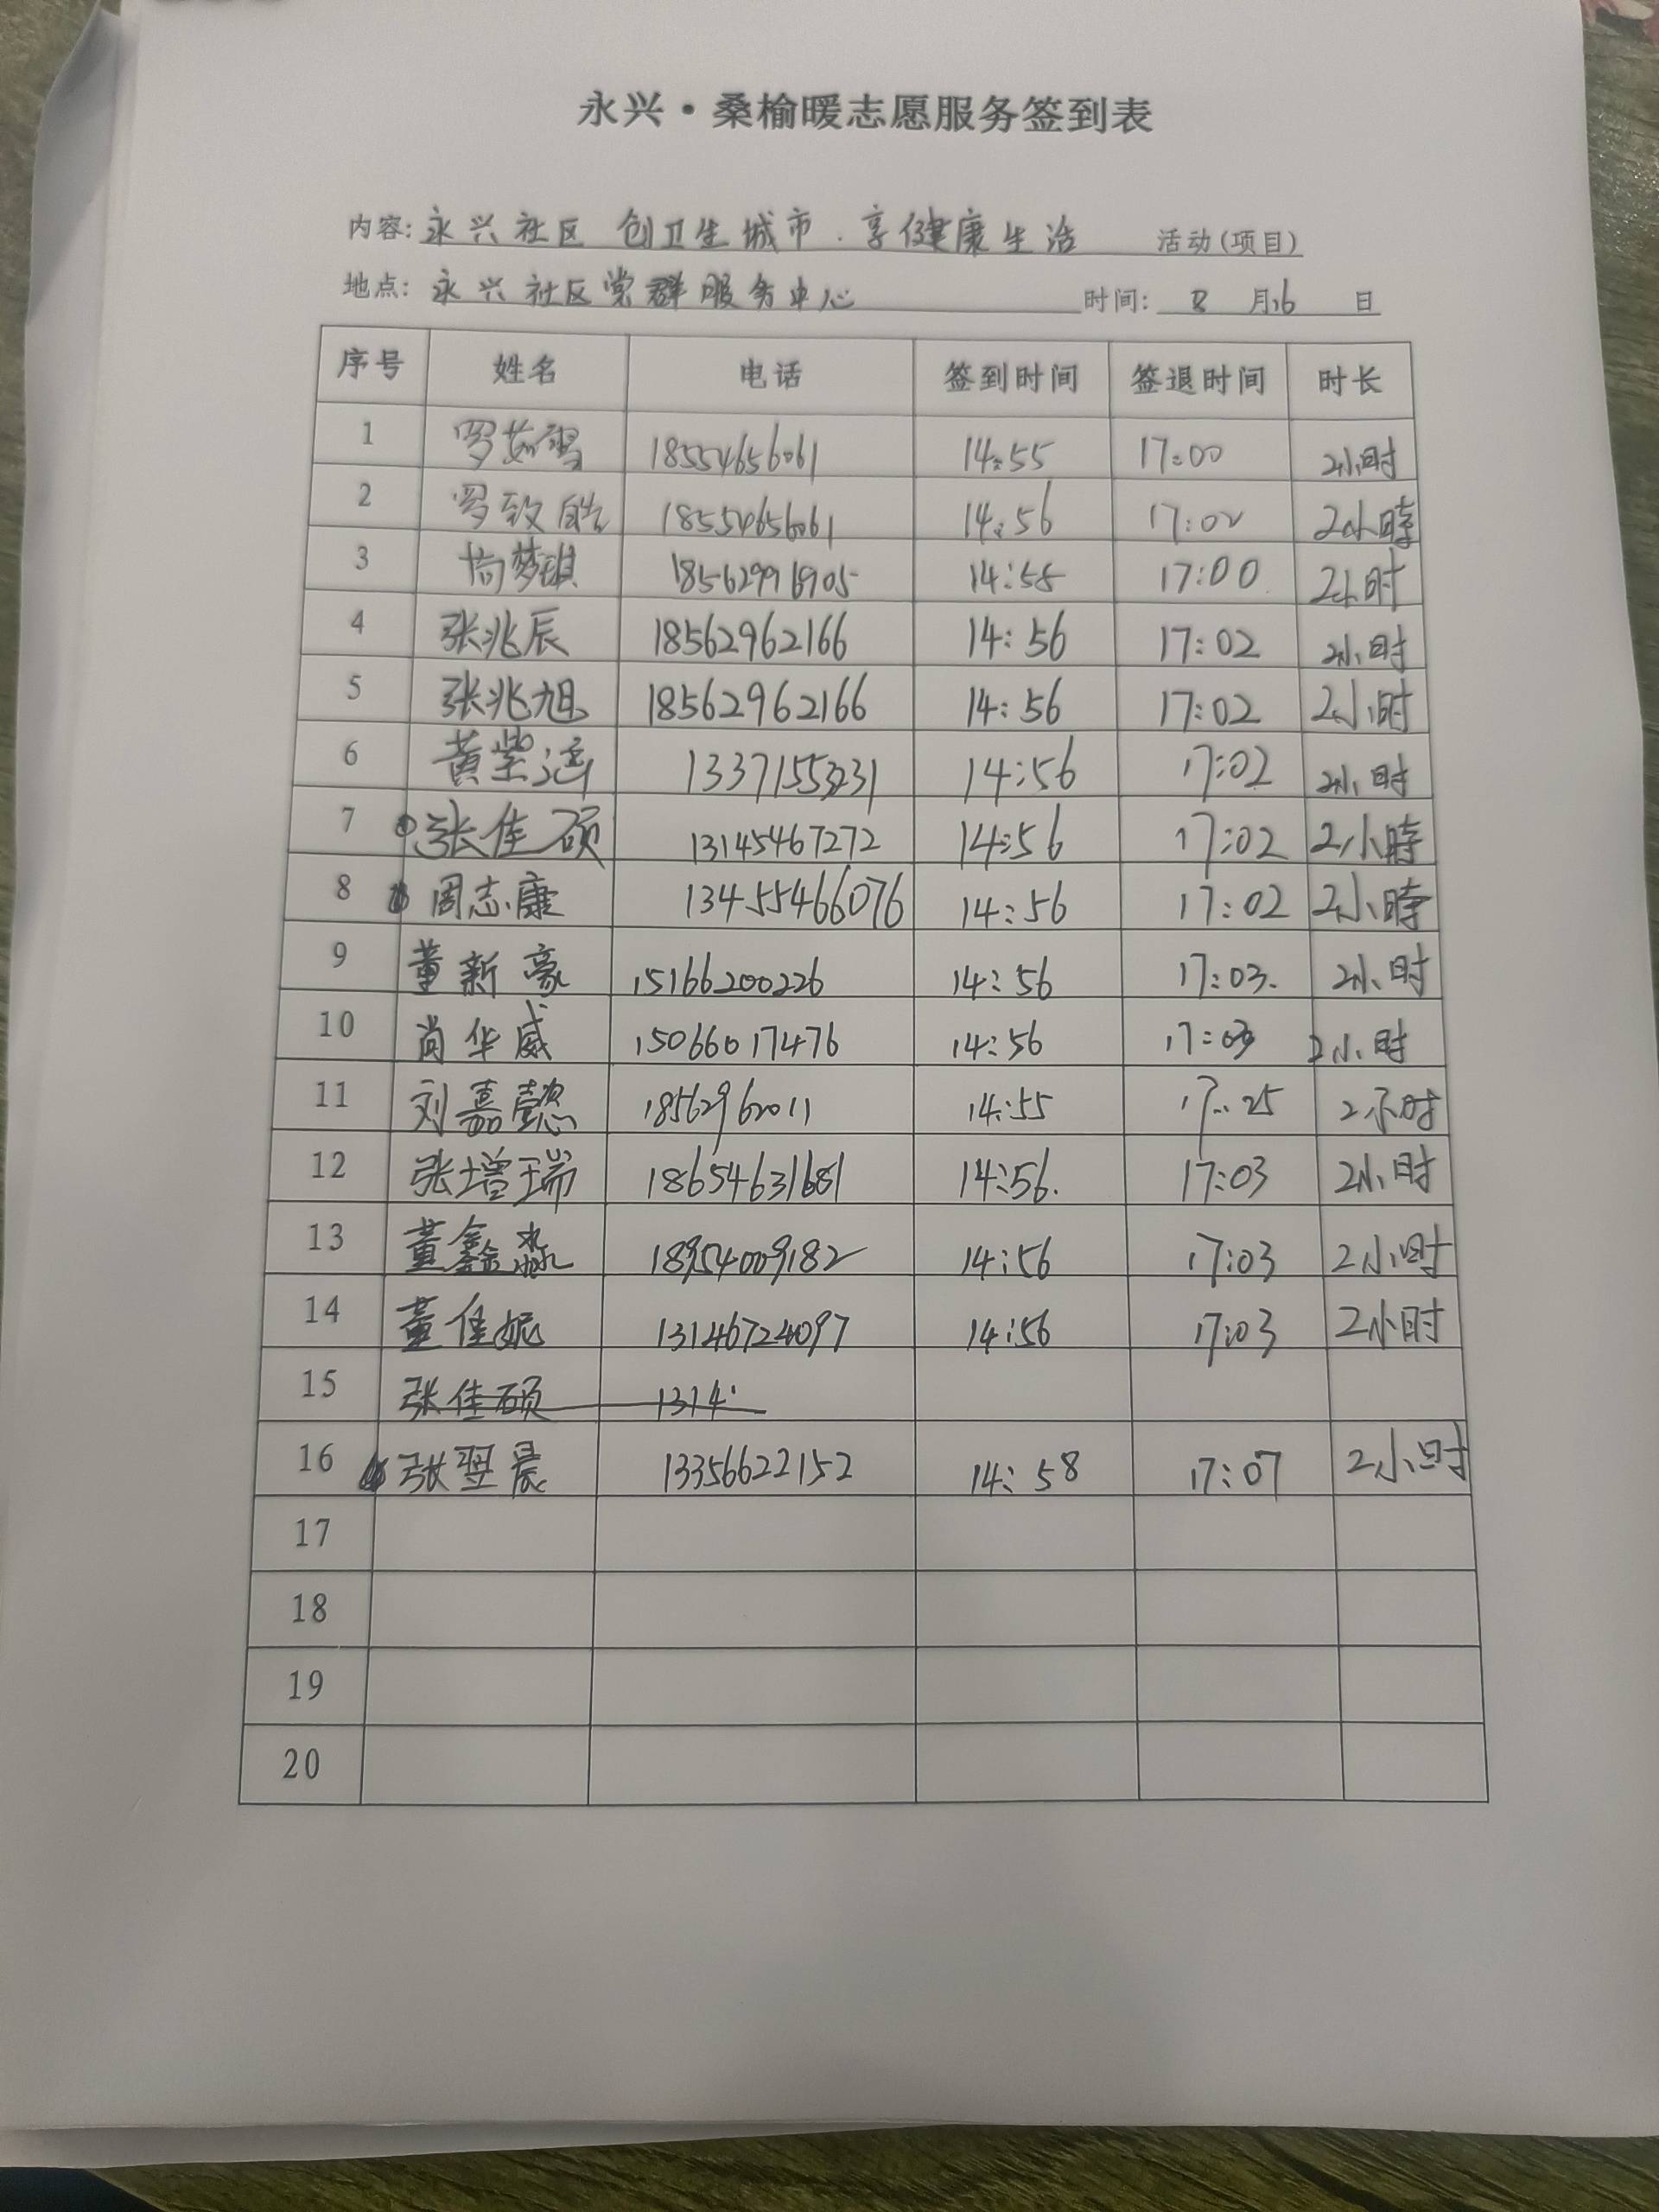 永兴·桑榆暖志愿服务签到表
内容: 永兴社区 创卫生城市.享健康生活 活动(项目)
地点: 永兴社区党群服务中心 时间: 8 月16 日
序号 姓名 电话 签到时间 签退时间 时长
1 罗茹雪 18554656061 14:55 17:00 2小时
2 罗致皓 18554656061 14:56 17:02 2小時
3 尚梦琪 14:58 17:00 2小时
4 张兆辰 18562962166 14:56 17:02 2小时
5 张兆旭 18562962166 14:56 17:02 2小时
6 黄紫涵 14:56 17:02 2小时
7 张佳硕 13145467272 14:56 17:02 2小時
8 周志康 13455466076 14:56 17:02 2小時
9 董新豪 15166200226 14:56 17:03. 2小时
10 尚华威 15066017476 14:56 17:03 2小时
11 刘嘉懿 18562962011 14:55 17:25 2小时
12 张增瑞 18654631681 14:56. 17:03 2小时
13 董鑫淼 18954009182 14:56 17:03 2小时
14 董佳妮 13146724097 14:56 17:03 2小时
15 张佳硕 1314
16 张翌晨 13356622152 14:58 17:07 2小时
17
18
19
20